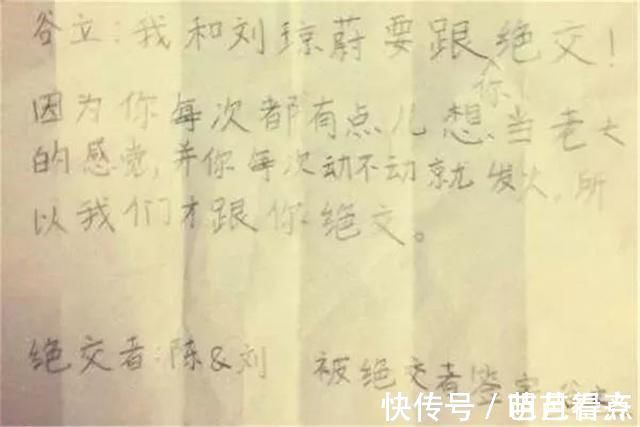 谷立:我和刘琼蔚要跟绝交!
你
因为你每次都有点儿想当老大
的感觉,并你每次动不动就发火,所
以我们才跟你绝交。
绝交者:陈&刘 被绝交者签字
快传号/